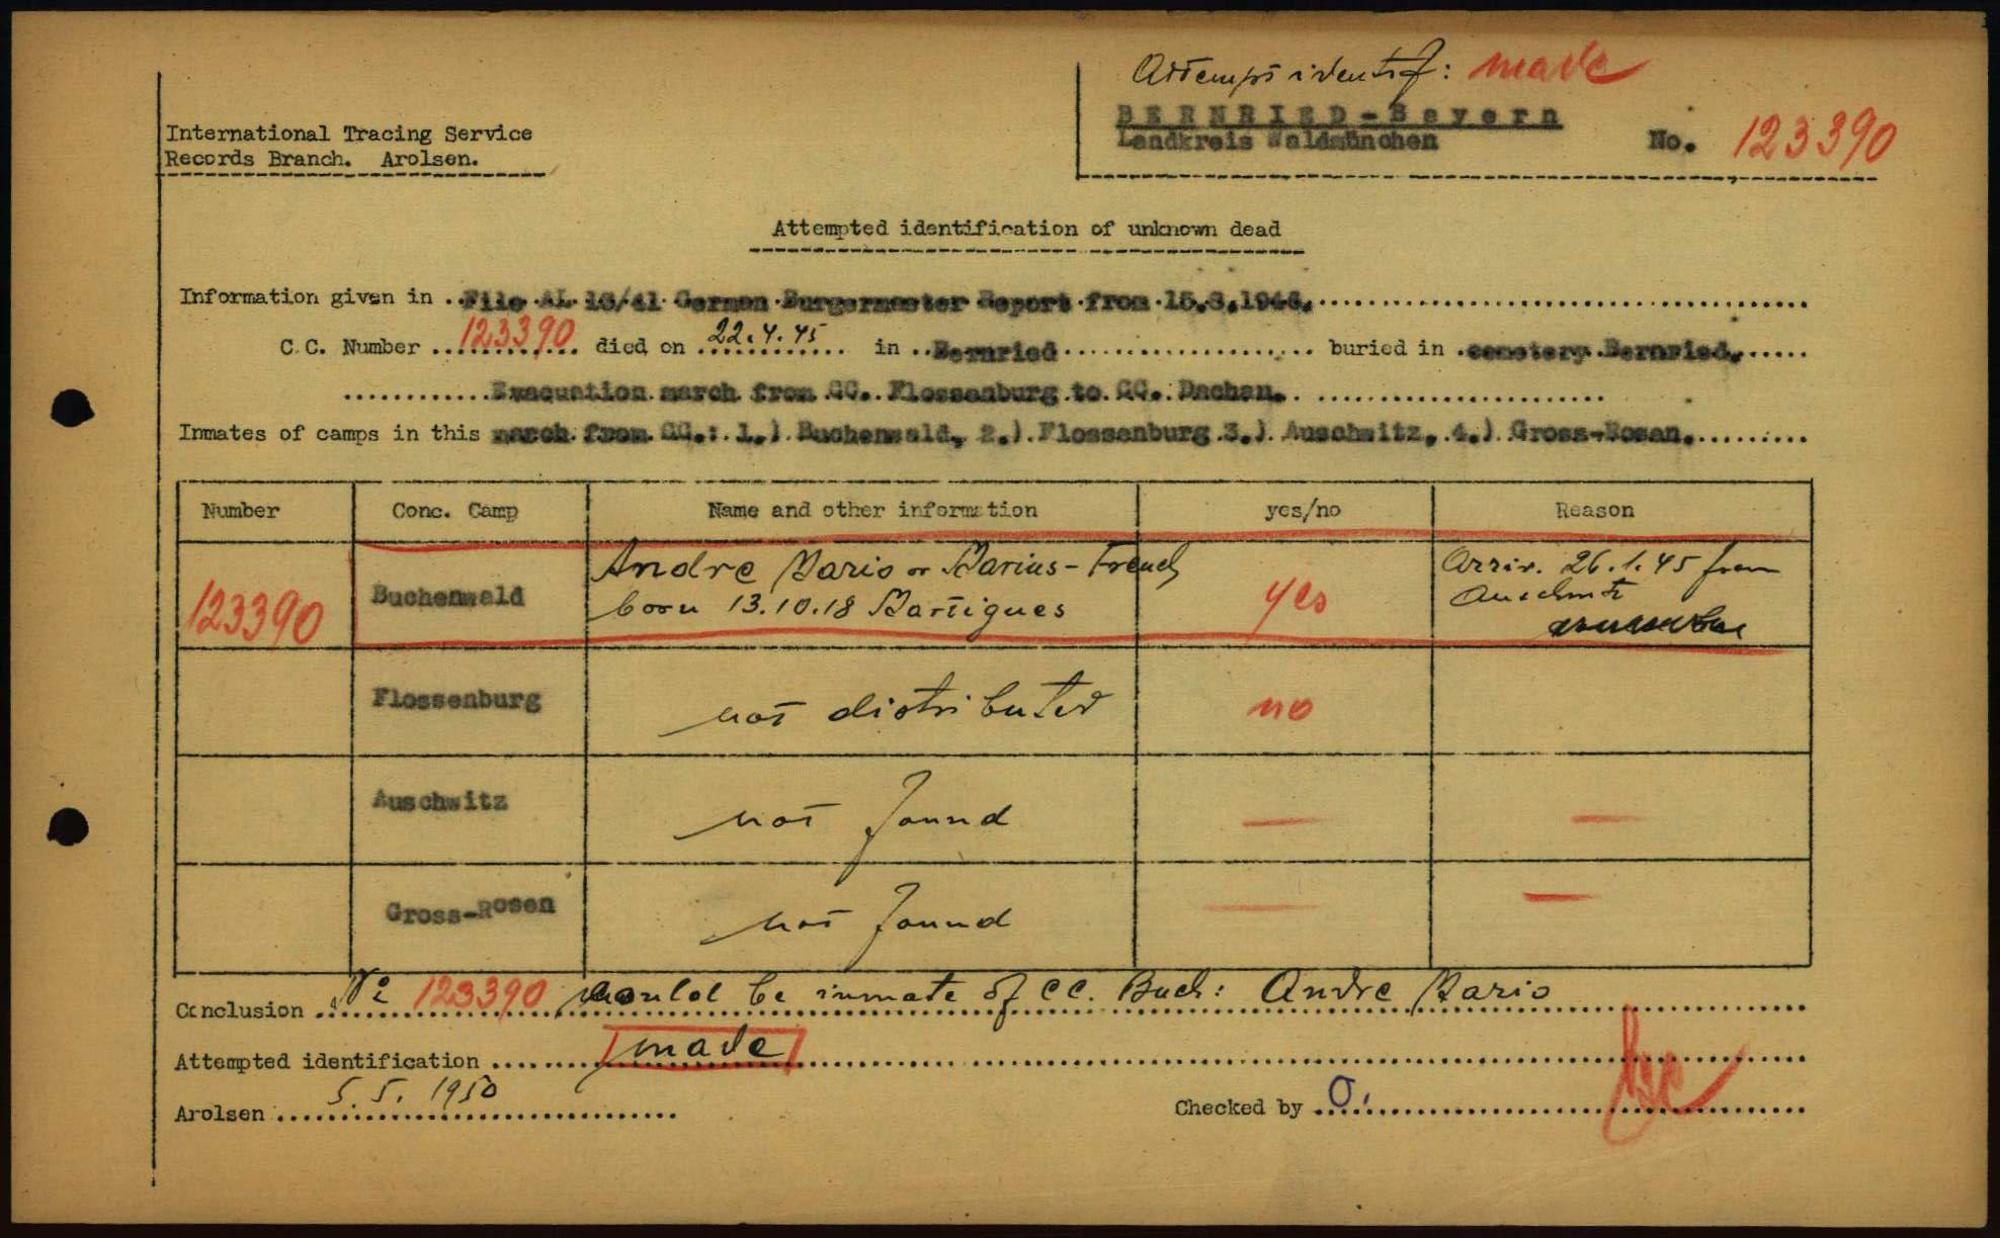 Attempt identif: made
BERNRIED-Bayern
Landkreis Waldmünchen No. 123390
International Tracing Service
Records Branch. Arolsen.
Attempted identification of unknown dead
Information given in ..File AL 16/41 German Burgermaster Report from 15.3.1946.
C.C. Number 123390 died on 22.4.45 in Bernried buried in cemetery Bernried.
Evacuation march from CC. Flossenburg to CC. Dachau.
Inmates of camps in this march from CC.: 1.) Buchenwald, 2.) Flossenburg 3.) Auschwitz, 4.) Gross-Rosen.
Number Conc. Camp Name and other information yes/no Reason
123390 Buchenwald Andre Mario or Marius - French yes Arriv. 26.1.45 from
born 13.10.18 Martigues Auschwitz
Flossenburg not distributed no
Auschwitz not found — —
Gross-Rosen not found — —
Conclusion No 123390 could be inmate of CC. Buch: Andre Mario
Attempted identification made
Arolsen 5.5.1950 Checked by O.